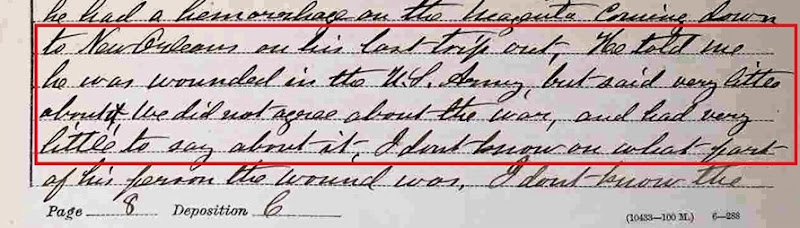 he had a hemorrhage on the Magenta coming down
to New Orleans on his last trip out, He told me
he was wounded in the U.S. Army, but said very little
about it We did not agree about the war, and had very
little to say about it, I dont know on what part
of his person the wound was, I dont know the
Page 8 Deposition C
(10433—100 M.) 6—288